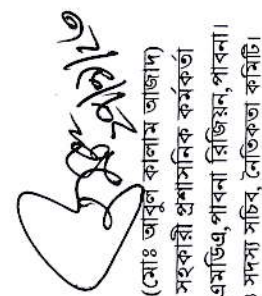 (মোঃ আবুল কালাম আজাদ)
সহকারী প্রশাসনিক কর্মকর্তা
এমডিএ,পাবনা রিজিয়ন,পাবনা।
সদস্য সচিব, নৈতিকতা কমিটি।